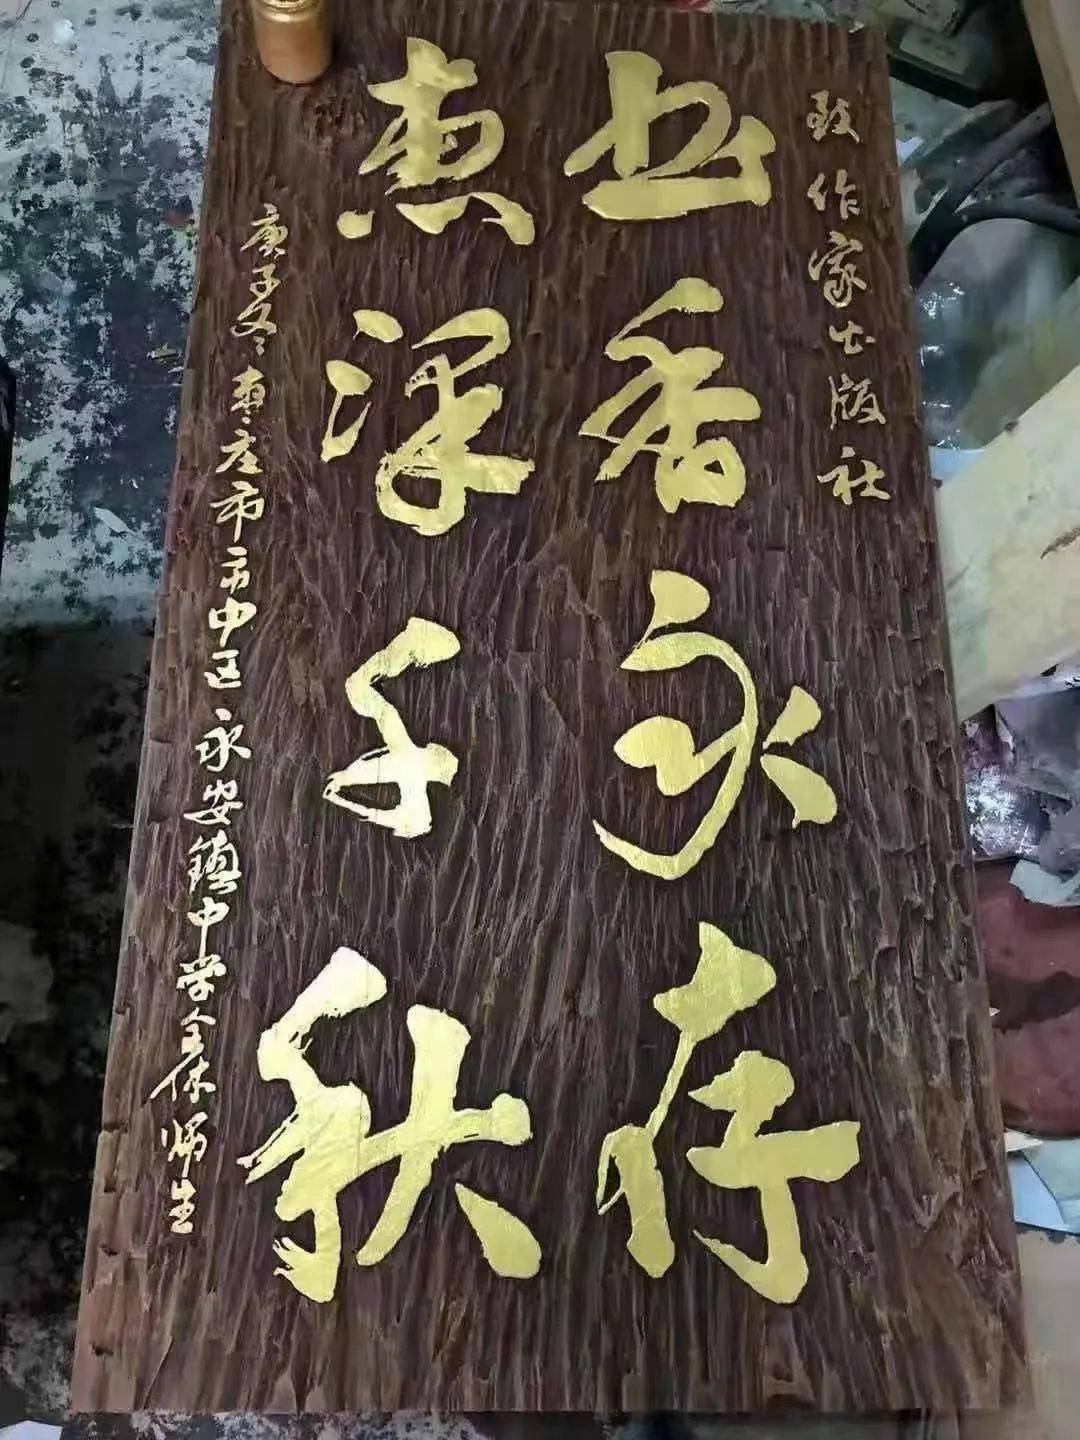 致作家出版社
书香永存
惠泽千秋
庚子冬枣庄市市中区永安镇中学全体师生